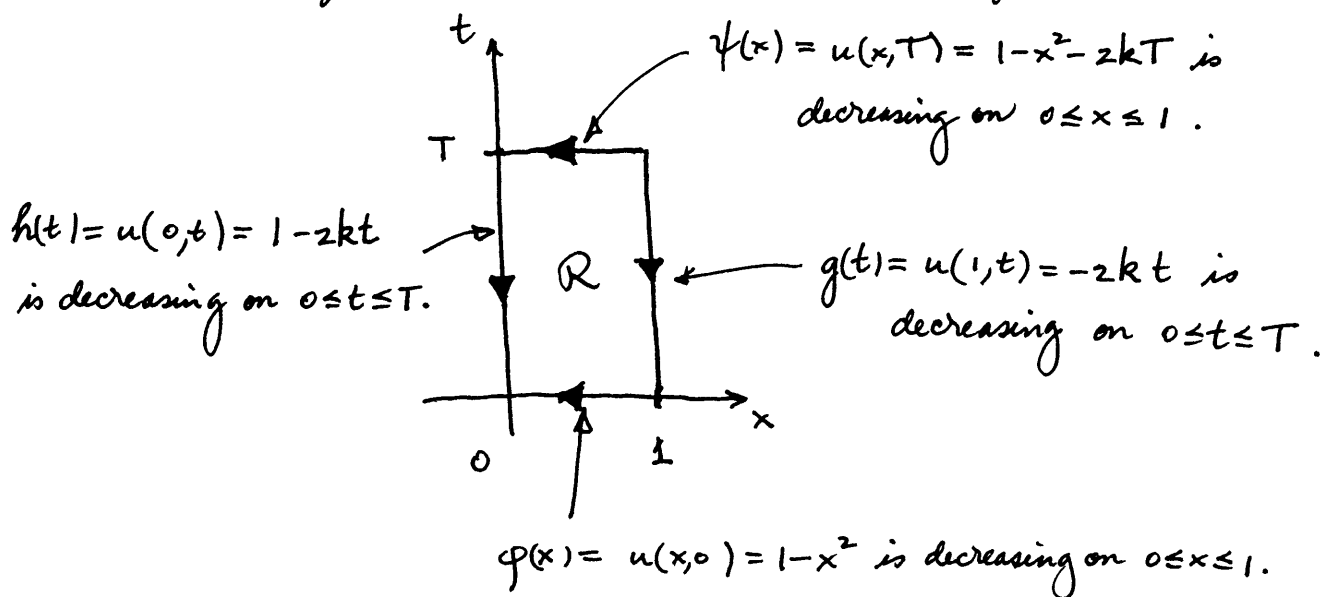 t
ψ(x) = u(x,T) = 1-x²-2kT is
decreasing on 0≤x≤1.
T
h(t)= u(0,t)= 1-2kt
is decreasing on 0≤t≤T.
R
g(t)= u(1,t)=-2kt is
decreasing on 0≤t≤T.
x
0
1
φ(x)= u(x,0)= 1-x² is decreasing on 0≤x≤1.